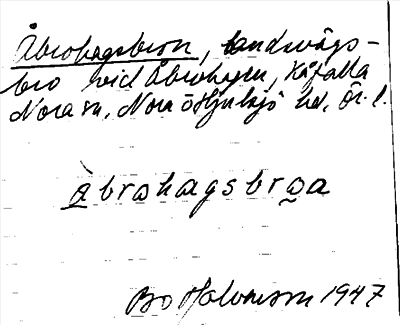 Åbrohagsbron, landsvägs-
bro vid Åbrohagen, Kåfalla
Nora sn, Nora o Hjulsjö hd, Ör. l.
àbrohagsbroa
Bo Halvarsson 1947